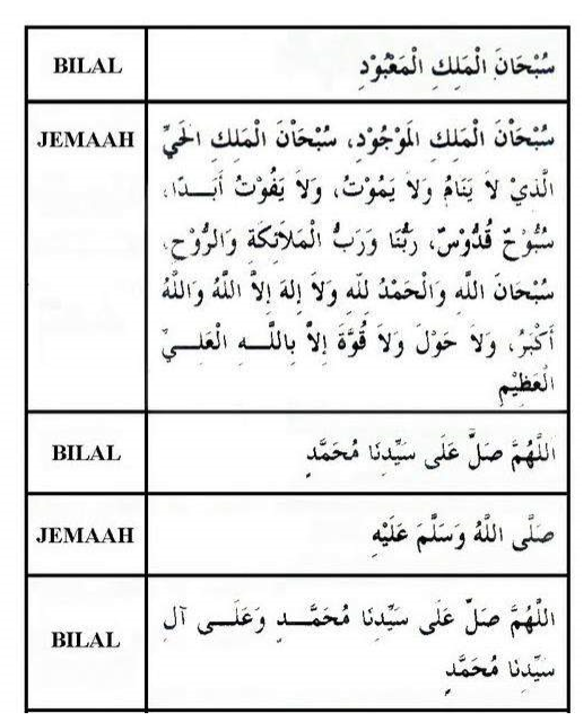 BILAL
سُبْحَانَ الْمَلِكِ الْمَعْبُوْدِ
JEMAAH
سُبْحَاْنَ الْمَلِكِ الْمَوْجُوْدِ، سُبْحَاْنَ الْمَلِكِ الْحَيِّ
الَّذِيْ لاَ يَنَامُ وَلاَ يَمُوْتُ، وَلاَ يَفُوْتُ أَبَـــدًا،
سُبُّوْحٌ قُدُّوْسٌ، رَبُّنَا وَرَبُّ الْمَلاَئِكَةِ وَالرُّوْحِ،
سُبْحَانَ اللَّهِ وَالْحَمْدُ لِلَّهِ وَلاَ إِلهَ إِلاَّ اللَّهُ وَاللَّهُ
أَكْبَرُ، وَلاَ حَوْلَ وَلاَ قُوَّةَ إِلاَّ بِاللَّـــهِ الْعَلِـــيِّ
الْعَظِيْمِ
BILAL
اللَّهُمَّ صَلِّ عَلَى سَيِّدِنَا مُحَمَّدٍ
JEMAAH
صَلَّى اللَّهُ وَسَلَّمَ عَلَيْهِ
BILAL
اللَّهُمَّ صَلِّ عَلَى سَيِّدِنَا مُحَمَّـــدٍ وَعَلَـــى آلِ
سَيِّدِنَا مُحَمَّدٍ